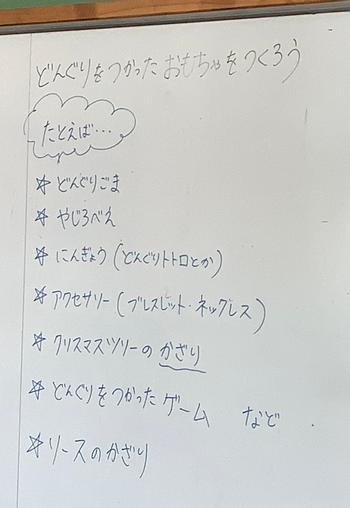 どんぐりをつかったおもちゃをつくろう
たとえば…
☆どんぐりごま
☆やじろべえ
☆にんぎょう(どんぐりトトロとか)
☆アクセサリー(ブレスレット・ネックレス)
☆クリスマスツリーのかざり
☆どんぐりをつかったゲーム など
☆リースのかざり